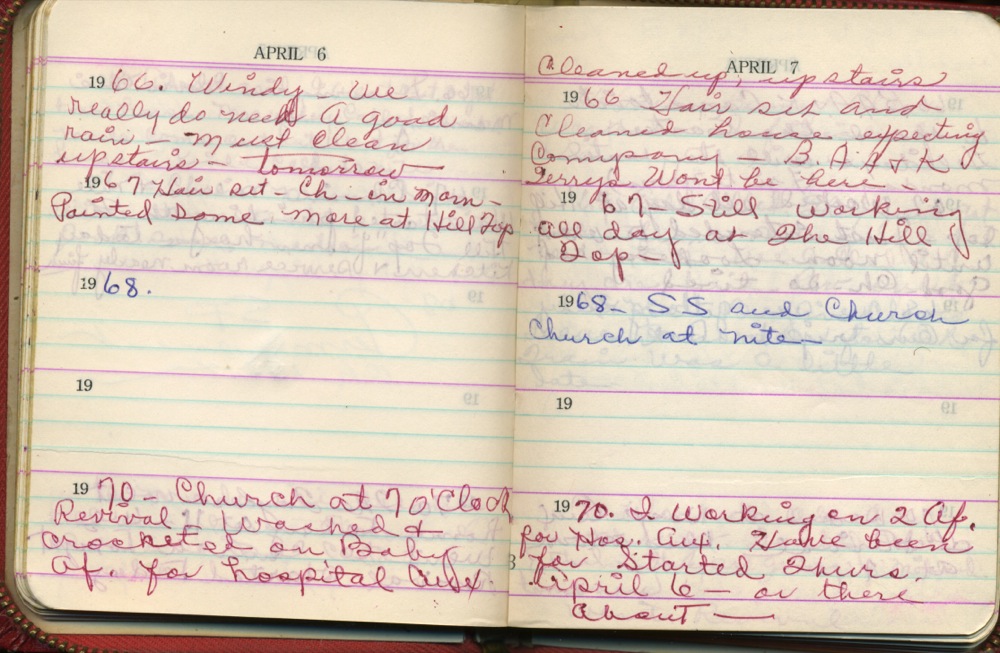 APRIL 6
1966. Windy - We
really do need A good
rain - Must Clean
upstairs - tomorrow -
1967 Hair set - Ch - in Morn -
Painted some more at Hill Top
1968.
19
1970 - Church at 7 O'Clock
Revival - washed &
crocheted on Baby
Af. for hospital Aux.
APRIL 7
Cleaned up, upstairs
1966 Hair set and
Cleaned house expecting
Company - B. A A & K
Jerrys Wont be here -
1967 - Still working
all day at The Hill
Top -
1968 - SS and Church
Church at nite -
19
1970. I Working on 2 Af.
for Hos. Aux. Have been
for Started Thurs.
April 6 - or there
about -